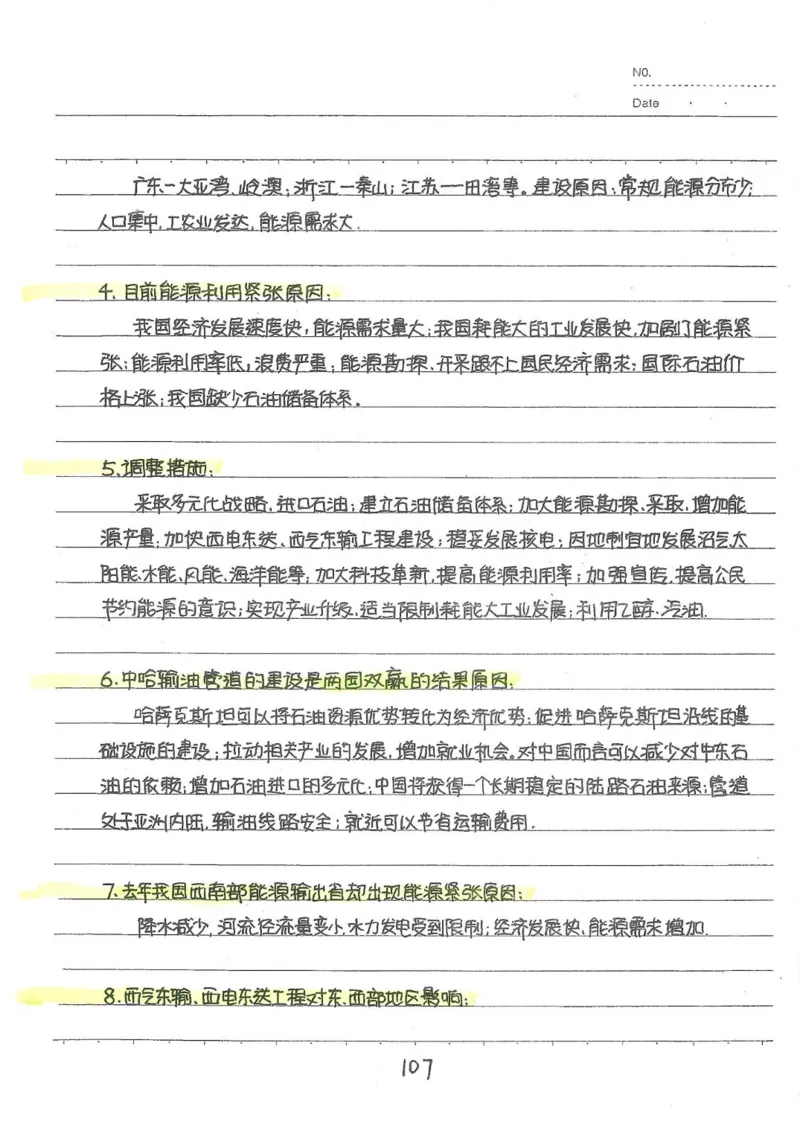 NO.
Date
广东一大亚湾、岭澳；浙江一秦山；江苏一田湾等。建设原因：常规能源分布少；
人口集中，工农业发达，能源需求大.
4、目前能源利用紧张原因：
我国经济发展速度快，能源需求量大；我国耗能大的工业发展快，加剧了能源紧
张；能源利用率低，浪费严重；能源勘探、开采跟不上国民经济需求；国际石油价
格上涨；我国缺少石油储备体系。
5、调整措施：
采取多元化战略，进口石油；建立石油储备体系；加大能源勘探、采取，增加能
源产量；加快西电东送、西气东输工程建设；稳妥发展核电；因地制宜地发展沼气太
阳能、水能、风能、海洋能等；加大科技革新，提高能源利用率；加强宣传，提高公民
节约能源的意识；实现产业升级、适当限制耗能大工业发展；利用乙醇、汽油.
6.中哈输油管道的建设是两国双赢的结果原因：
哈萨克斯坦可以将石油资源优势转化为经济优势；促进哈萨克斯坦沿线的基
础设施的建设；拉动相关产业的发展，增加就业机会。对中国而言可以减少对中东石
油的依赖；增加石油进口的多元化；中国将获得一个长期稳定的陆路石油来源；管道
处于亚洲内陆，输油线路安全；就近可以节省运输费用.
7、去年我国西南部能源输出省却出现能源紧张原因：
降水减少，河流径流量变小，水力发电受到限制；经济发展快，能源需求增加.
8.西气东输、西电东送工程对东、西部地区影响：
107